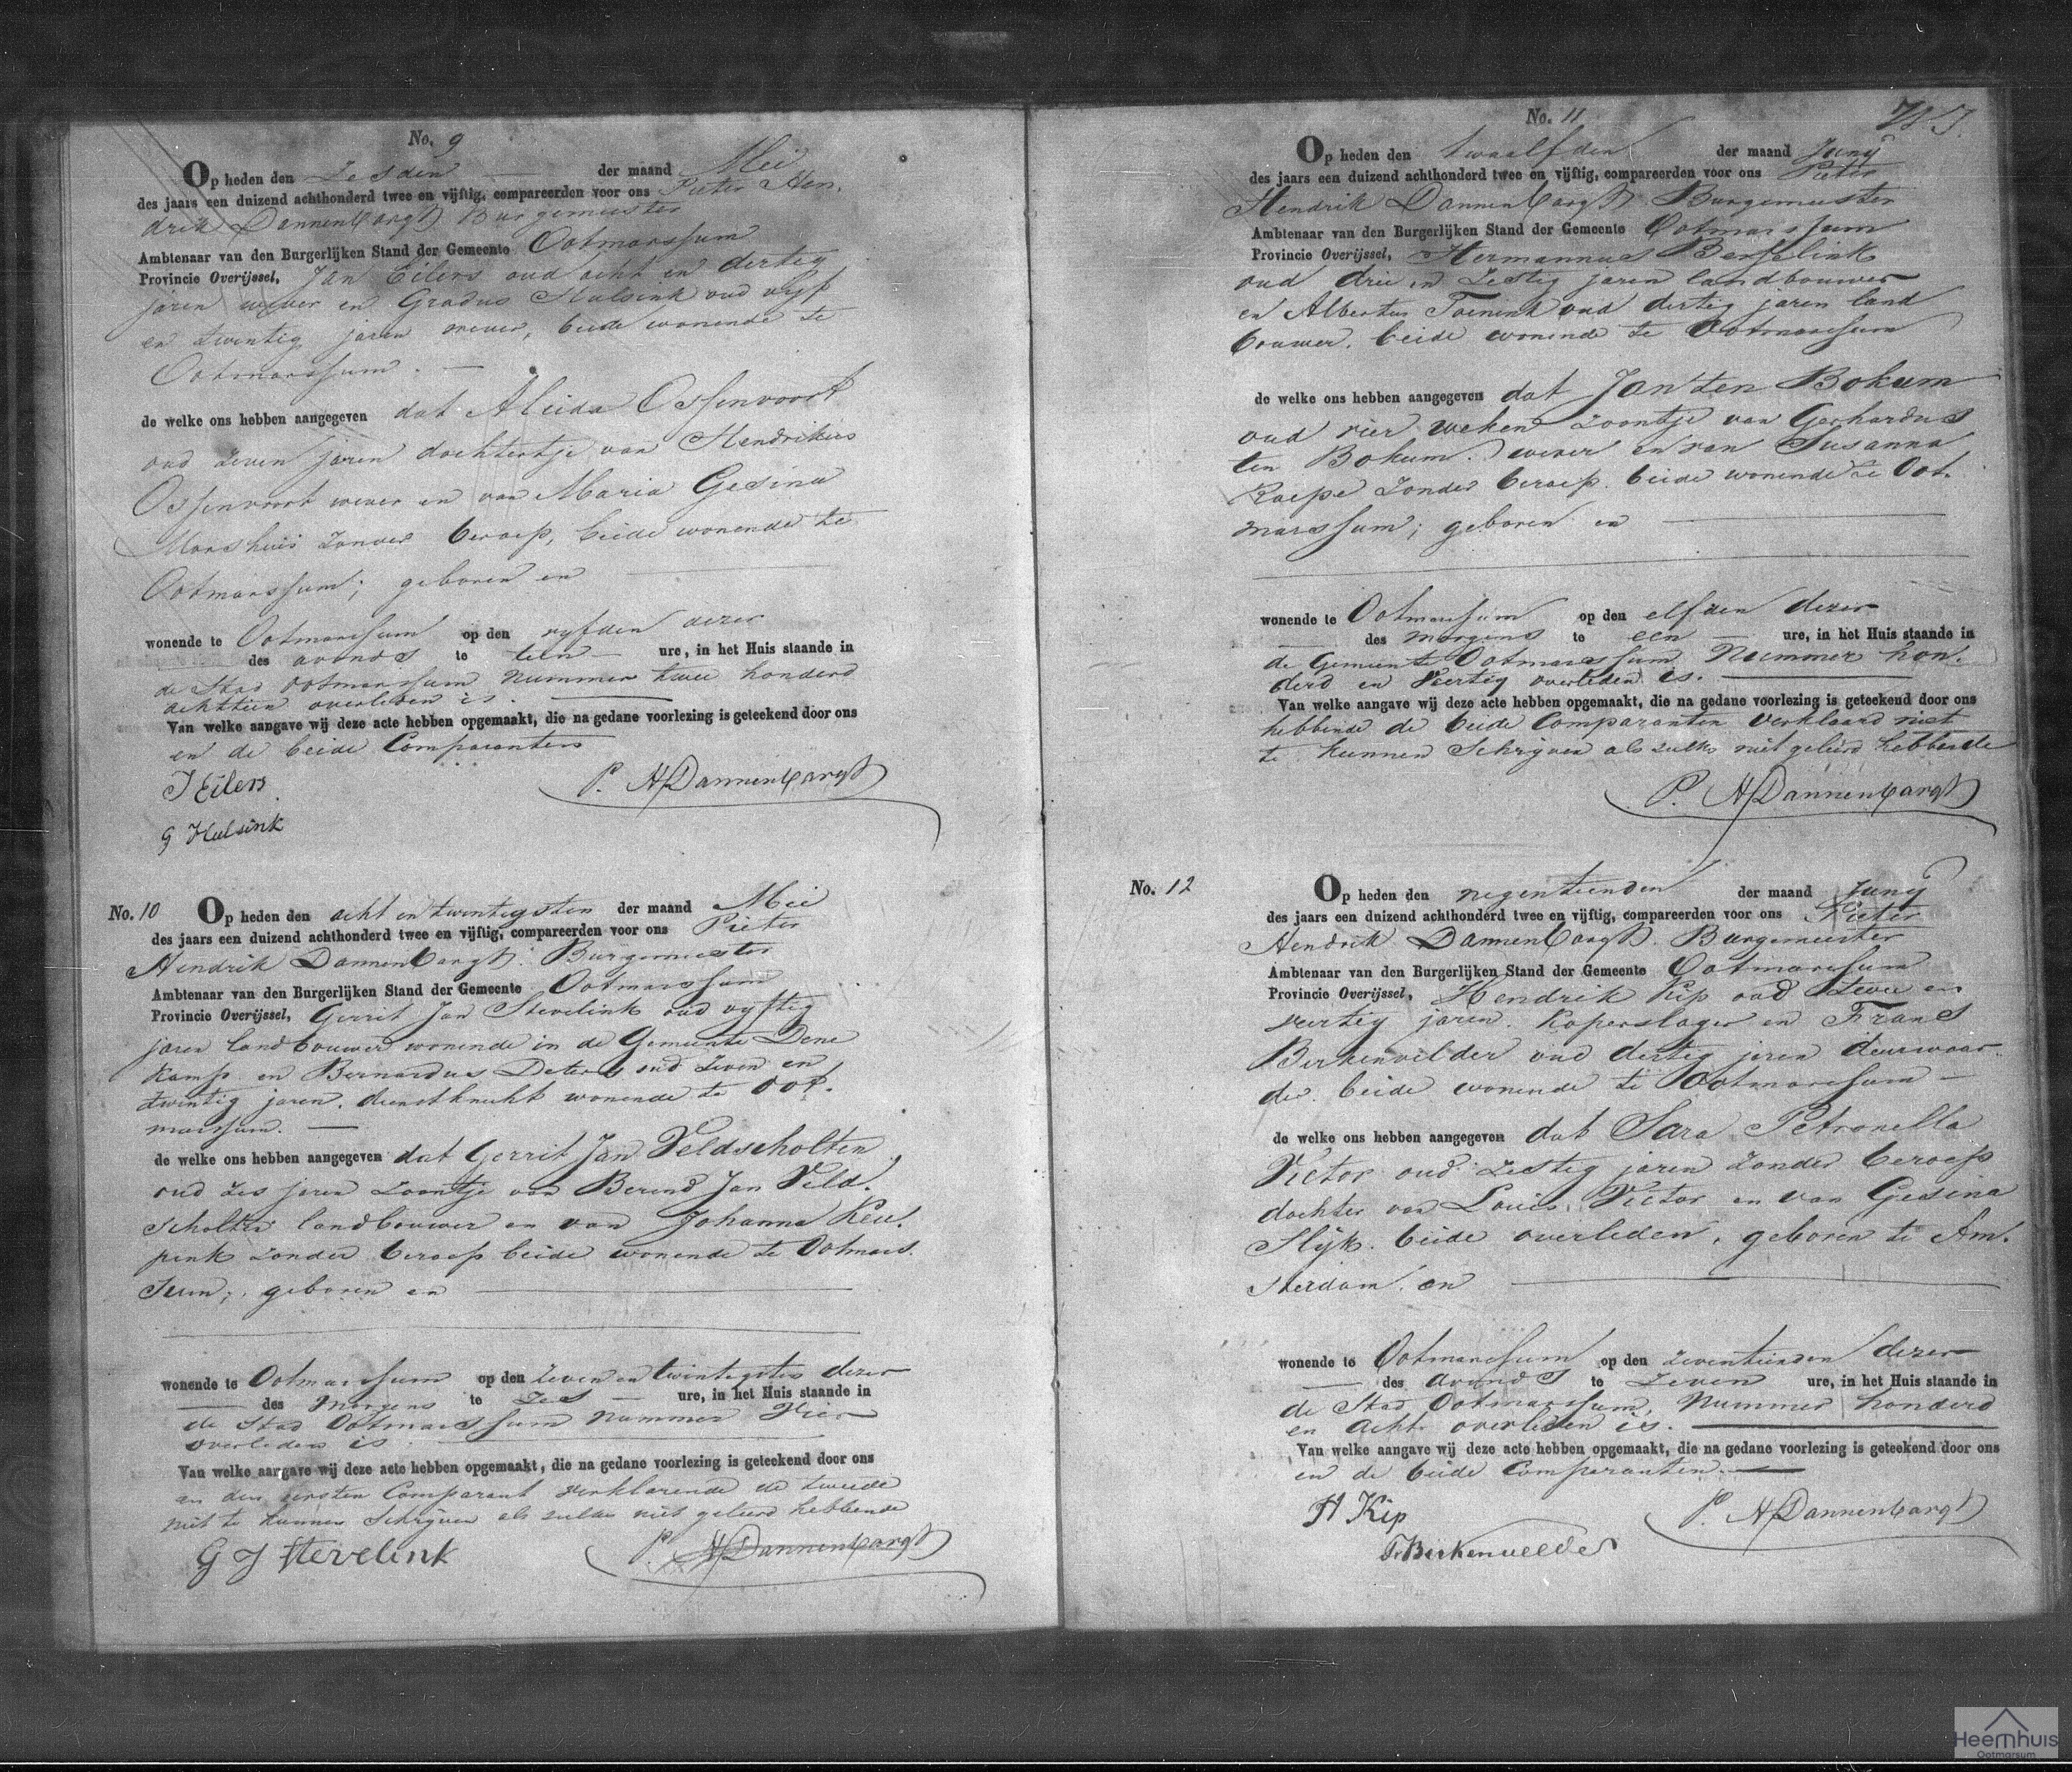 No. 9
Op heden den Zesden der maand Mei
des jaars een duizend achthonderd twee en vijftig, compareerden voor ons Pieter Hen.
drik Dannenbargh Burgemeester
Ambtenaar van den Burgerlijken Stand der Gemeente Ootmarssum
Provincie Overijssel, Jan Eilers oud acht en dertig
jaren wever en Gradus Hulsink oud vyf
en twintig jaren wever, beide wonende te
Ootmarssum.
de welke ons hebben aangegeven dat Aleida Ossenvoort
oud zeven jaren dochtertje van Hendrikus
Ossenvoort wever en van Maria Gesina
Morshuis zonder beroep, beide wonende te
Ootmarssum; geboren en
wonende te Ootmarssum op den vyfden dezer
des avonds te tien ure, in het Huis staande in
de Stad Ootmarssum nummer twee honderd
achttien overleden is.
Van welke aangave wij deze acte hebben opgemaakt, die na gedane voorlezing is geteekend door ons
en de beide Comparanten
J Eilers
P. H Dannenbargh
G Hulsink
No. 10
Op heden den acht en twintigsten der maand Mei
des jaars een duizend achthonderd twee en vijftig, compareerden voor ons Pieter
Hendrik Dannenbargh. Burgemeester
Ambtenaar van den Burgerlijken Stand der Gemeente Ootmarssum
Provincie Overijssel, Gerrit Jan Stevelink oud vyftig
jaren landbouwer wonende in de Gemeente Dene
kamp en Bernardus Deters oud zeven en
twintig jaren. dienstknecht wonende te Oot.
marssum.
de welke ons hebben aangegeven dat Gerrit Jan Veldscholten
oud zes jaren zoontje van Berend Jan Veld.
scholten landbouwer en van Johanna Reu.
pink zonder beroep beide wonende te Ootmars.
sum; geboren en
wonende te Ootmarssum op den zeven en twintigsten dezer
des morgens te zes ure, in het Huis staande in
de Stad Ootmarssum nummer Vier
overleden is.
Van welke aangave wij deze acte hebben opgemaakt, die na gedane voorlezing is geteekend door ons
en den eersten Comparant verklarende de tweede
niet te kunnen Schrijven als zulks niet geleerd hebbende
G J Stevelink
P. H Dannenbargh
No. 11
Op heden den twaalfden der maand Juny
des jaars een duizend achthonderd twee en vijftig, compareerden voor ons Pieter
Hendrik Dannenbargh Burgemeester
Ambtenaar van den Burgerlijken Stand der Gemeente Ootmarssum
Provincie Overijssel, Hermannus Besselink
oud drie en zestig jaren landbouwer
en Albertus Toenink oud dertig jaren land
bouwer. beide wonende te Ootmarssum
de welke ons hebben aangegeven dat Jan ten Bokum
oud vier weken zoontje van Gerhardus
ten Bokum. wever en van Susanna
Roepe zonder beroep. beide wonende te Oot.
marssum; geboren en
wonende te Ootmarssum op den elfden dezer
des morgens te een ure, in het Huis staande in
de Gemeente Ootmarssum Nummer hon.
derd en Veertig overleden is.
Van welke aangave wij deze acte hebben opgemaakt, die na gedane voorlezing is geteekend door ons
hebbende de beide Comparanten verklaard niet
te kunnen Schrijven als zulks niet geleerd hebbende
P. H Dannenbargh
No. 12
Op heden den negentienden der maand Juny
des jaars een duizend achthonderd twee en vijftig, compareerden voor ons Pieter
Hendrik Dannenbargh. Burgemeester
Ambtenaar van den Burgerlijken Stand der Gemeente Ootmarssum
Provincie Overijssel, Hendrik Kip oud twee en
veertig jaren. koperslager en Frans
Berkenvelder oud dertig jaren deurwaar.
der. beide wonende te Ootmarssum
de welke ons hebben aangegeven dat Sara Petronella
Victor oud zestig jaren zonder beroep
dochter van Louis Victor en van Gesina
Slijk. beide overleden, geboren te Am.
sterdam en
wonende te Ootmarssum op den zeventienden dezer
des avonds te zeven ure, in het Huis staande in
de Stad Ootmarssum, Nummer honderd
en acht overleden is.
Van welke aangave wij deze acte hebben opgemaakt, die na gedane voorlezing is geteekend door ons
en de beide Comparanten.
H Kip
P. H Dannenbargh
F. Berkenvelder
Heemhuis
Ootmarsum